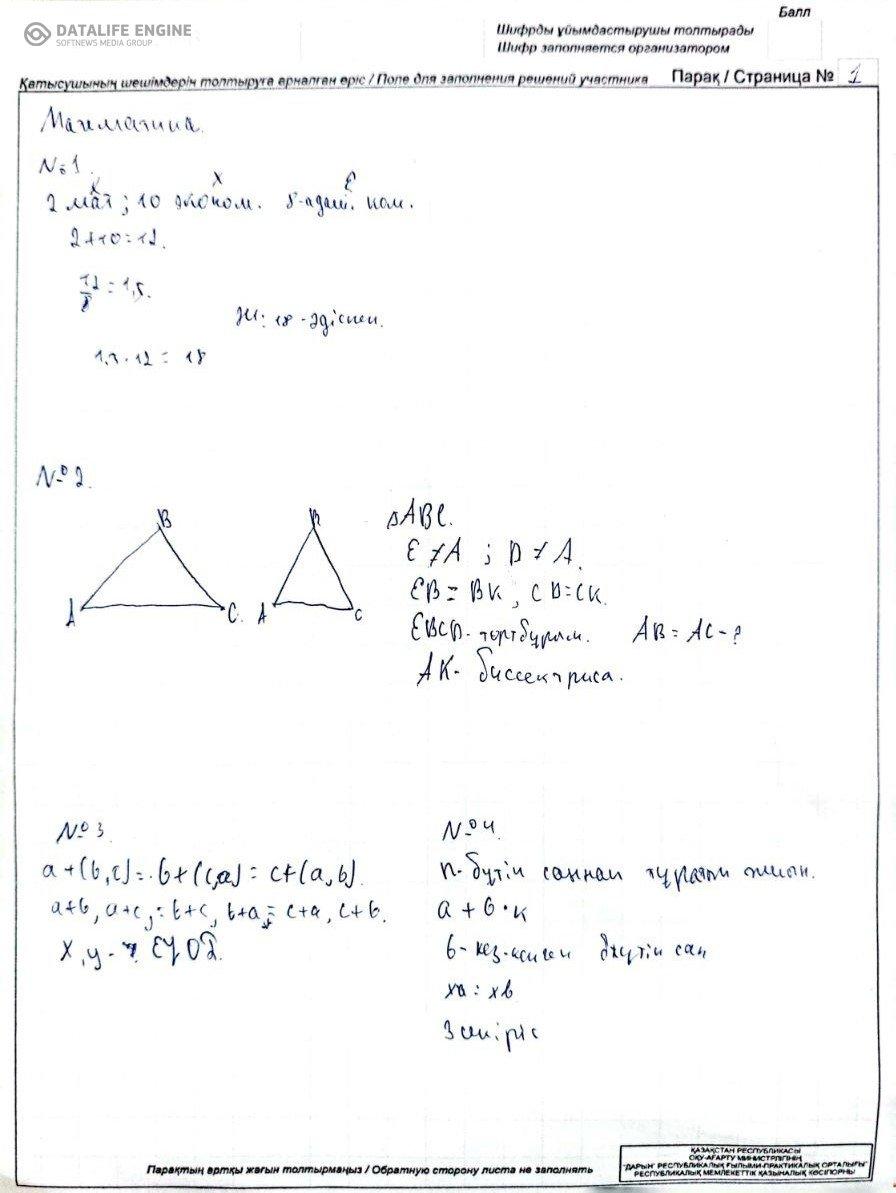 DATALIFE ENGINE
SOFTNEWS MEDIA GROUP
Балл
Шифрды ұйымдастырушы толтырады
Шифр заполняется организатором
Қатысушының шешімдерін толтыруға арналған өріс / Поле для заполнения решений участника Парақ / Страница № 1
Математика.
№1.
x x E
2 мат ; 10 эконом. 8-адам. ком.
2+10=12.
12/8 = 1,5.
Ж: 18 - әдіспен.
1,5 · 12 = 18
№ 2.
B
A C.
B
A C
△ABC.
E ≠ A ; D ≠ A.
EB = BK ; CD=CK.
EBCD - төртбұрыш. AB = AC - ?
AK - биссектриса.
№ 3.
a + (b, c) = b + (c, a) = c + (a, b).
a+b, a+c, = b+c, b+a, = c+a, c+b.
x, y - ? ЕҮОБ.
№ 4.
n - бүтін саннан тұратын жиын.
a + b · k
b - кез-келген бүтін сан
xa = xb
Парақтың артқы жағын толтырмаңыз / Обратную сторону листа не заполнять
ҚАЗАҚСТАН РЕСПУБЛИКАСЫ
ОҚУ-АҒАРТУ МИНИСТРЛІГІНІҢ
"ДАРЫН" РЕСПУБЛИКАЛЫҚ ҒЫЛЫМИ-ПРАКТИКАЛЫҚ ОРТАЛЫҒЫ"
РЕСПУБЛИКАЛЫҚ МЕМЛЕКЕТТІК ҚАЗЫНАЛЫҚ КӘСІПОРНЫ